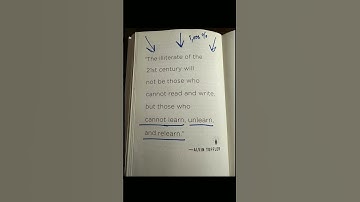 "The illiterate of the
21st century will
not be those who
cannot read and write,
but those who
cannot learn, unlearn,
and relearn."
—ALVIN TOFFLER